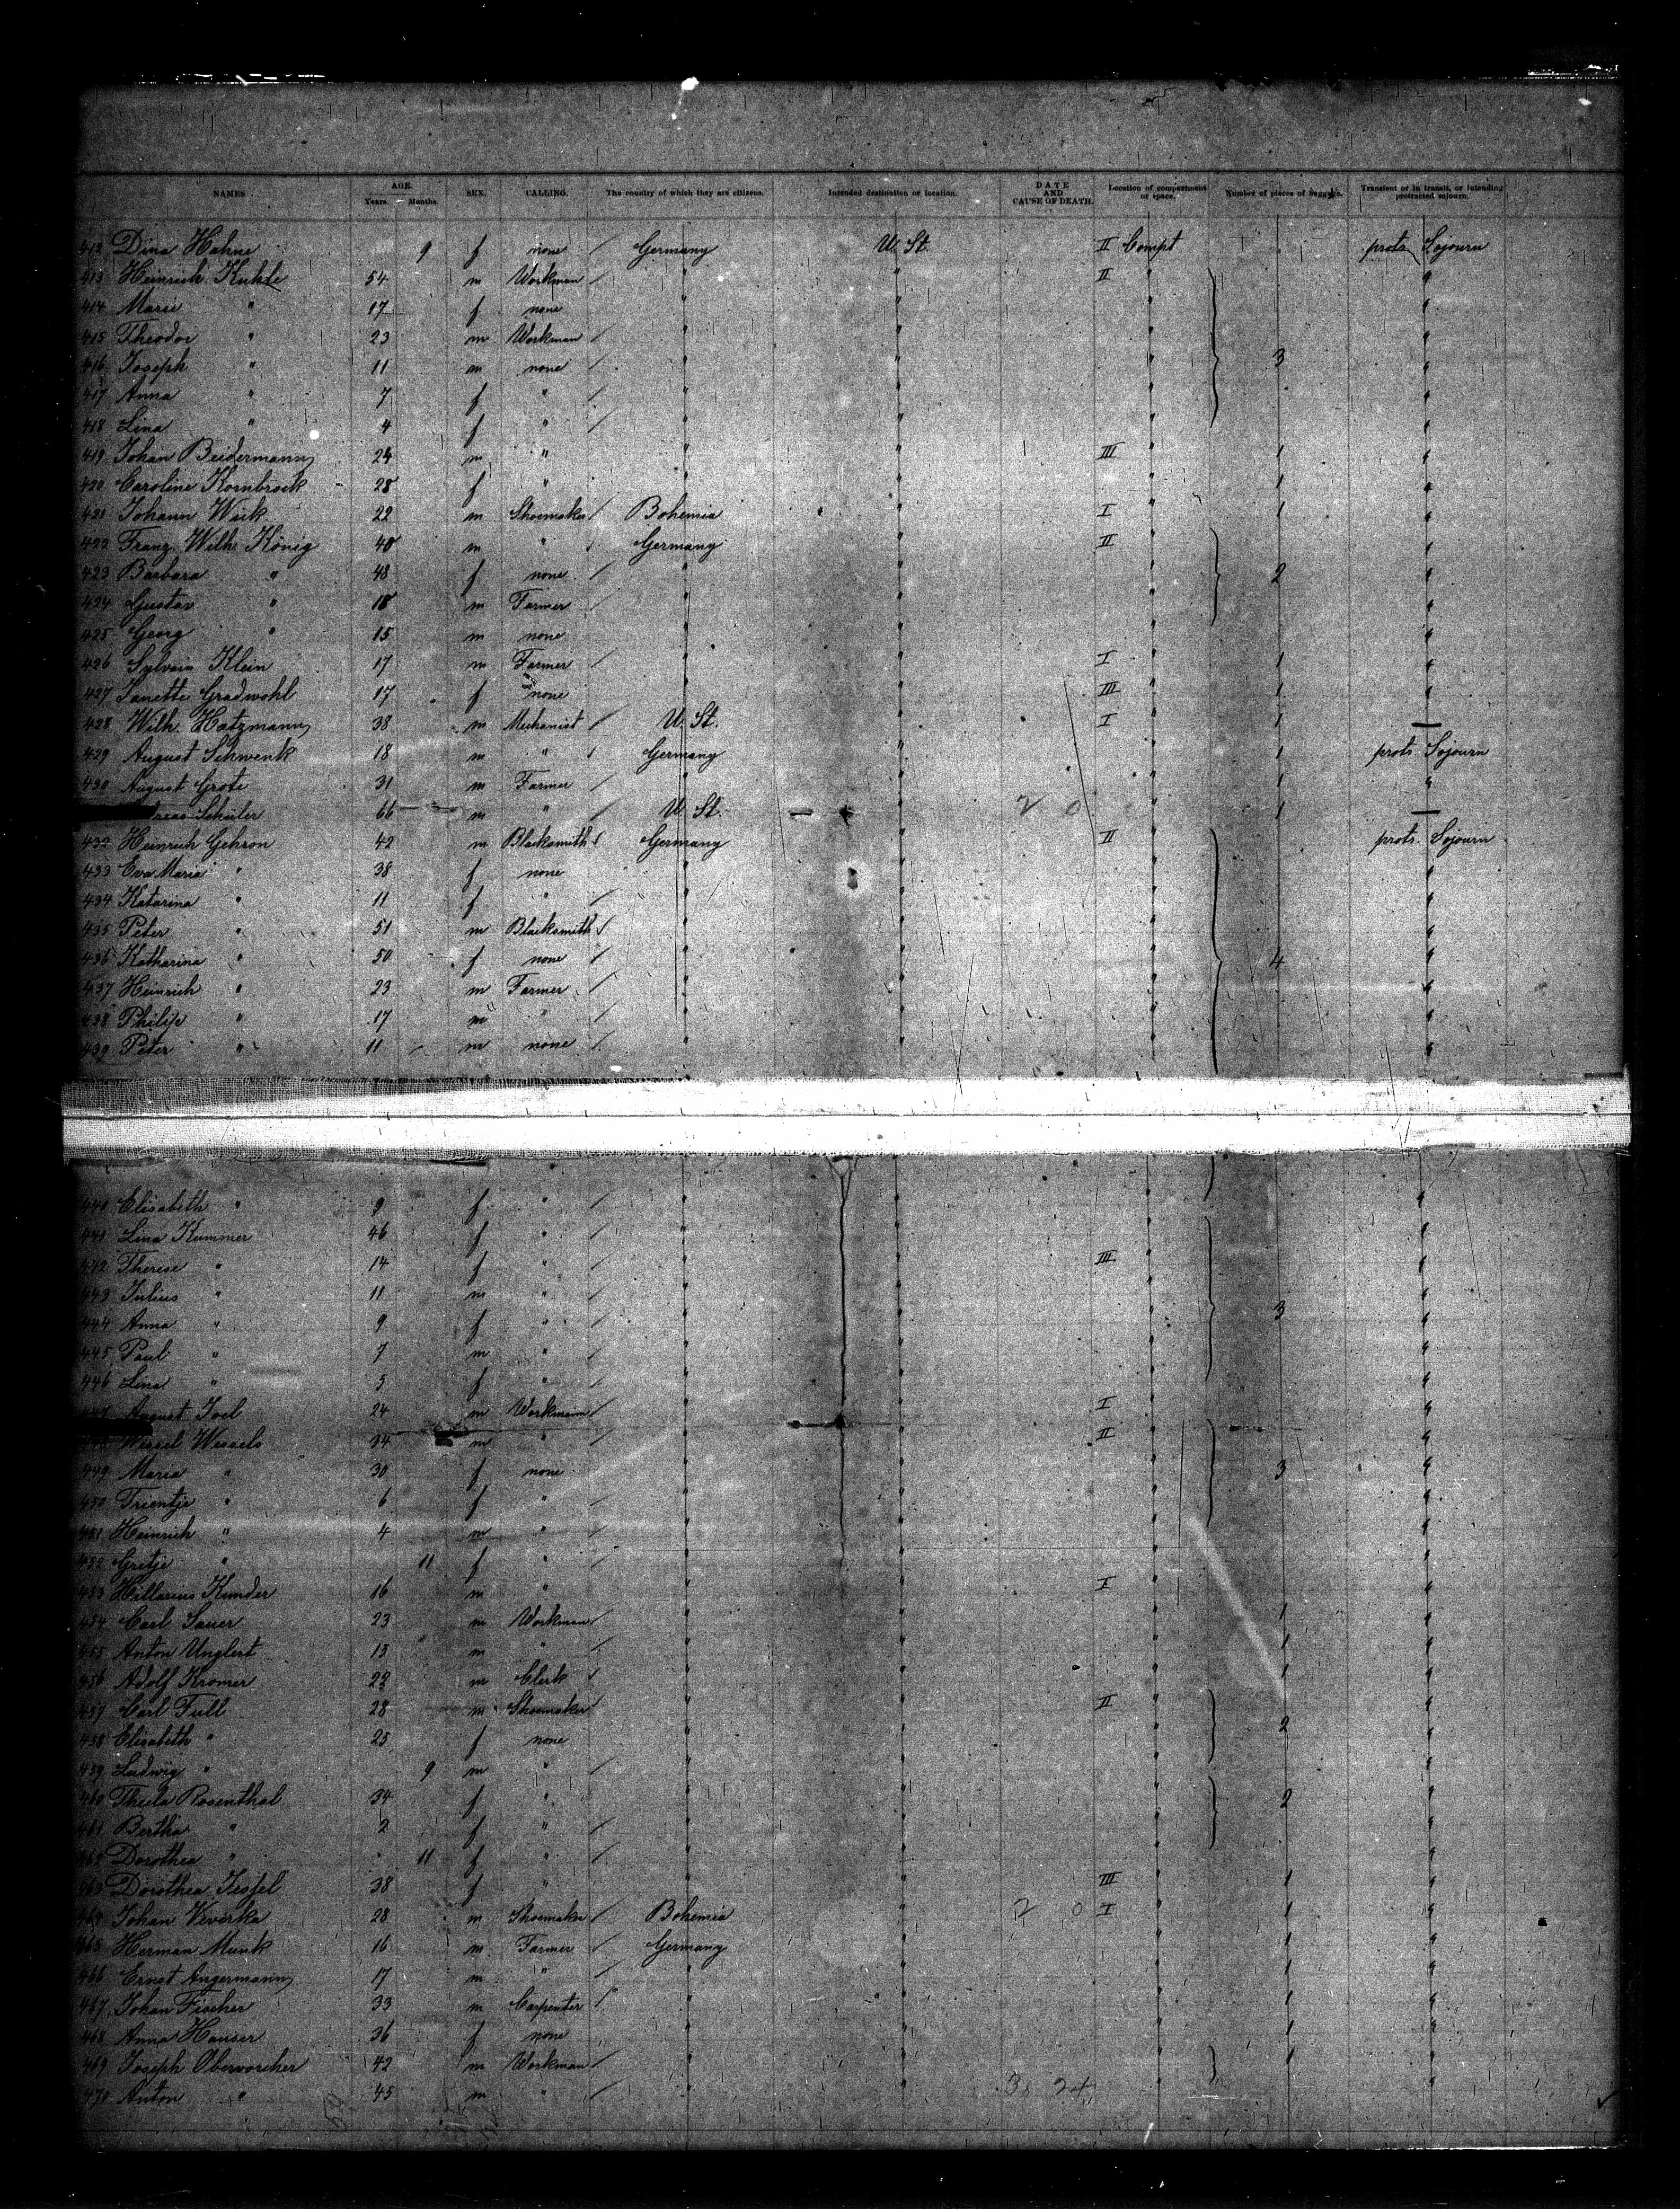 NAMES AGE. Years. Months. SEX. CALLING. The country of which they are citizens. Intended destination or location. DATE AND CAUSE OF DEATH. Location of compartment or space. Number of pieces of baggage. Transient or in transit, or intending protracted sojourn.
412 Dina Hahne 9 f none / Germany U. St. II Compt protr. Sojourn
413 Heinrich Kuhle 54 m Workman / " " II " "
414 Marie " 17 f none " " " "
415 Theodor " 23 m Workman / " " " "
416 Joseph " 11 m none / " " " 3 "
417 Anna " 7 f " / " " " "
418 Lina " 4 f " / " " " "
419 Johan Beidermann 24 m " " " III " 1 "
420 Caroline Kornbrock 28 f " " " " 1 "
421 Johann Weik 22 m Shoemaker / Bohemia " I " 1 "
422 Franz Wilh. König 40 m " / Germany " II " "
423 Barbara " 48 f none / " " " 2 "
424 Gustav " 18 m Farmer / " " " "
425 Georg " 15 m none " " " "
426 Sylvain Klein 17 m Farmer / " " I " 1 "
427 Janette Gradwohl 17 f none " " III " 1 "
428 Wilh. Hatzmann 38 m Mechanist / U. St. " I " 1 —
429 August Schwenk 18 m " / Germany " " 1 protr. Sojourn
430 August Grote 31 m Farmer " " " 1 "
Schüler 66 m " / U. St. " 2 0 " 1 —
432 Heinrich Gehron 42 m Blacksmith / Germany " II " protr. Sojourn
433 Eva Maria " 38 f none " " " "
434 Katarina " 11 f " / " " " "
435 Peter " 51 m Blacksmith / " " " "
436 Katharina " 50 f none / " " " 4 "
437 Heinrich " 23 m Farmer / " " " "
438 Philip " 17 m " / " " " "
439 Peter " 11 m none / " " " "
440 Elisabeth " 9 f " / " " " "
441 Lina Kummer 46 f " / " " " "
442 Therese " 14 f " / " " III " "
443 Julius " 11 m " / " " " "
444 Anna " 9 f " / " " " 3 "
445 Paul " 7 m " / " " " "
446 Lina " 5 f " / " " " "
447 August Joel 24 m Workmann / " " I " "
Wessel Wessels 34 m " / " " II " "
449 Maria " 30 f none " " " 3 "
450 Trientje " 6 f " / " " " "
451 Heinrich " 4 m " / " " " "
452 Gretje " 11 f " / " " " "
453 Hillarius Kunder 16 m " " " I " "
454 Carl Sauer 23 m Workman / " " " 1 "
455 Anton Unglert 15 m " / " " " 1 "
456 Adolf Kromer 22 m Clerk / " " " 1 "
457 Carl Full 28 m Shoemaker " " II " "
458 Elisabeth " 25 f none " " " 2 "
459 Ludwig " 9 m " " " " "
460 Thecla Rosenthal 34 f " " " " 2 "
461 Bertha " 2 f " / " " " "
462 Dorothea " 11 f " / " " " "
463 Dorothea 38 f " " " III " 1 "
464 Johan Veverka 28 m Shoemaker / Bohemia " 2 0 I " 1 "
465 Herman Munk 16 m Farmer / Germany " " 1 "
466 Ernst Angermann 17 m " / " " " 1 "
467 Johan Fischer 33 m Carpenter / " " " 1 "
468 Anna Hauser 36 f none " " " 1 "
469 Joseph Obervorcher 42 m Workman / " " " 1 "
470 Anton " 45 m " / " " 3 24 " "